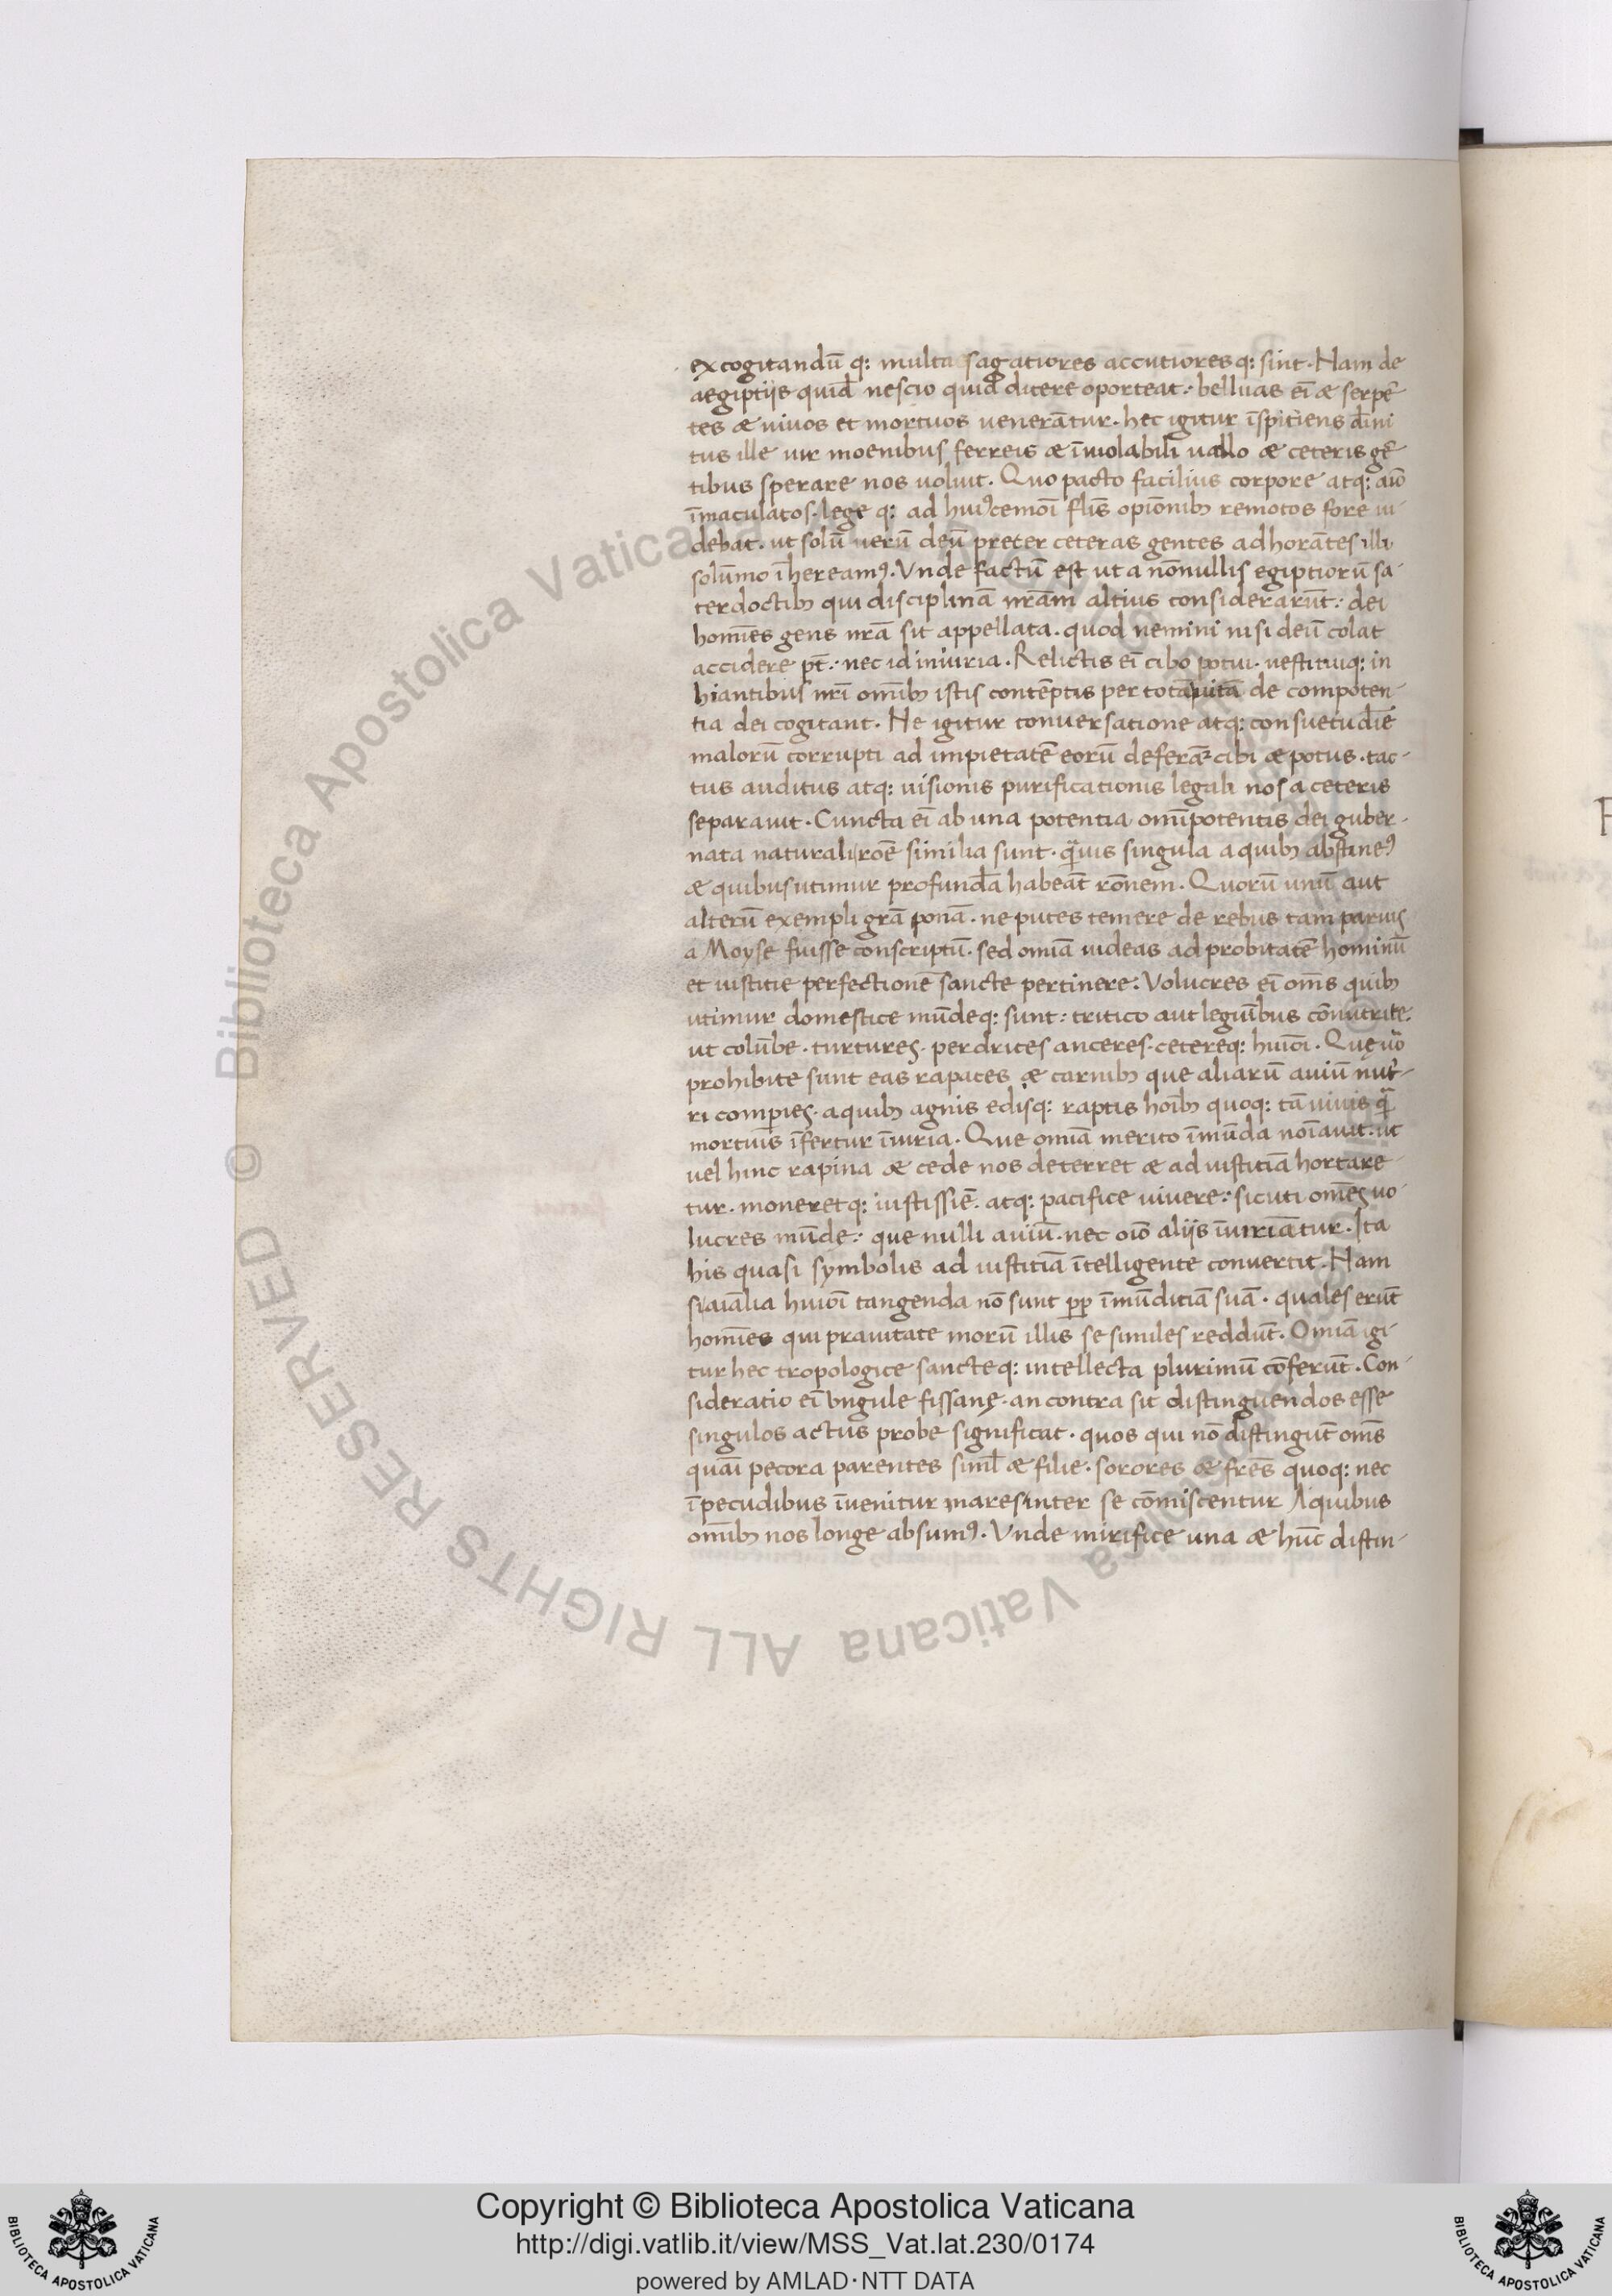 excogitandū q: multa sagatiores accutiores q: sint. Nam de
aegiptijs quid nescio quid dicere oporteat: belluas eī æ serpē
tes æ uiuos et mortuos uenerātur. hec igitur īspitiens diui
tus ille uir moenibus ferreis æ īuiolabili uallo æ ceteris gē
tibus sperare nos uoluit. Quo pacto facilius corpore atq: aīo
īmaculatos. lege q: ad huiꝰcemoī flīs opionibꝫ remotos fore ui-
debat. ut solū uerū deū preter ceteras gentes adhorātes illi
solūmo īhereamꝰ. Vnde factū est ut a nōnullis egiptiorū sa-
cerdoctibꝫ qui disciplinā nr̄am altius considerarūt: dei
homīes gens nr̄a sit appellata. quod nemini nisi deū colat
accidere pt̄: nec id iniuria. Relictis eī cibo potui. uestituiq: in
hiantibus nr̄i omībꝫ istis contēptis per totā uitā de compoten-
tia dei cogitant. Ne igitur conuersatione atq: consuetudīe
malorū corrupti ad impietatē eorū deferāꝛ cibi æ potus. tac-
tus auditus atq: uisionis purificationis legali nos a ceteris
separauit. Cuncta eī ab una potentia omīpotentis dei guber-
nata naturali roē similia sunt. q̄uis singula a quibꝫ abstineꝰ
æ quibus utimur profundā habeāt rōnem. Quorū unū aut
alterū exempli grā ponā. ne putes temere de rebus tam paruis
a Moyse fuisse conscriptū. sed omīa uideas ad probitatē hominū
et iustitie perfectionē sancte pertinere. Volucres eī oms̄ quibꝫ
utimur domestice mūdeq: sunt: tritico aut legūībus cōnutrite.
ut colūbe. turtures. perdrices anceres. cetereq: huiōi. Quę uō
prohibite sunt eas rapaces æ carnibꝫ que aliarū auiū nut-
ri comperies. a quibꝫ agnis edisq: raptis hoībꝫ quoq: tā uiuis q̄
mortuis īfertur īiuria. Que omīa merito īmūda noīauit. ut
uel hinc rapina æ cede nos deterret æ ad iustitiā hortare-
tur. moneretq: iustissīe. atq: pacifice uiuere: sicuti omēs uo-
lucres mūde: que nulli auiū. nec oīo alijs īiuriātur. Ita
his quasi symbolis ad iustitiā ītelligente conuertit. Nam
si aīalia huiōi tangenda nō sunt pp īmūditiā suā. quales erūt
homīes qui prauitate morū illis se similes reddūt. Omīa igi-
tur hec tropologice sancteq: intellecta plurimū cōferūt. Con-
sideratio eī Vngule fissanę. an contra sit distinguendos esse
singulos actus probe significat. quos qui nō distingūt oms̄
quāi pecora parentes simł æ filie. sorores æ fres̄ quoq: nec
ī pecudibus īuenitur mares inter se cōmiscentur A quibus
omībꝫ nos longe absumꝰ. Vnde mirifice una æ hūc distin-
Copyright © Biblioteca Apostolica Vaticana
http://digi.vatlib.it/view/MSS_Vat.lat.230/0174
powered by AMLAD·NTT DATA
BIBLIOTECA APOSTOLICA VATICANA
BIBLIOTECA APOSTOLICA VATICANA
© Biblioteca Apostolica Vaticana
ALL RIGHTS RESERVED